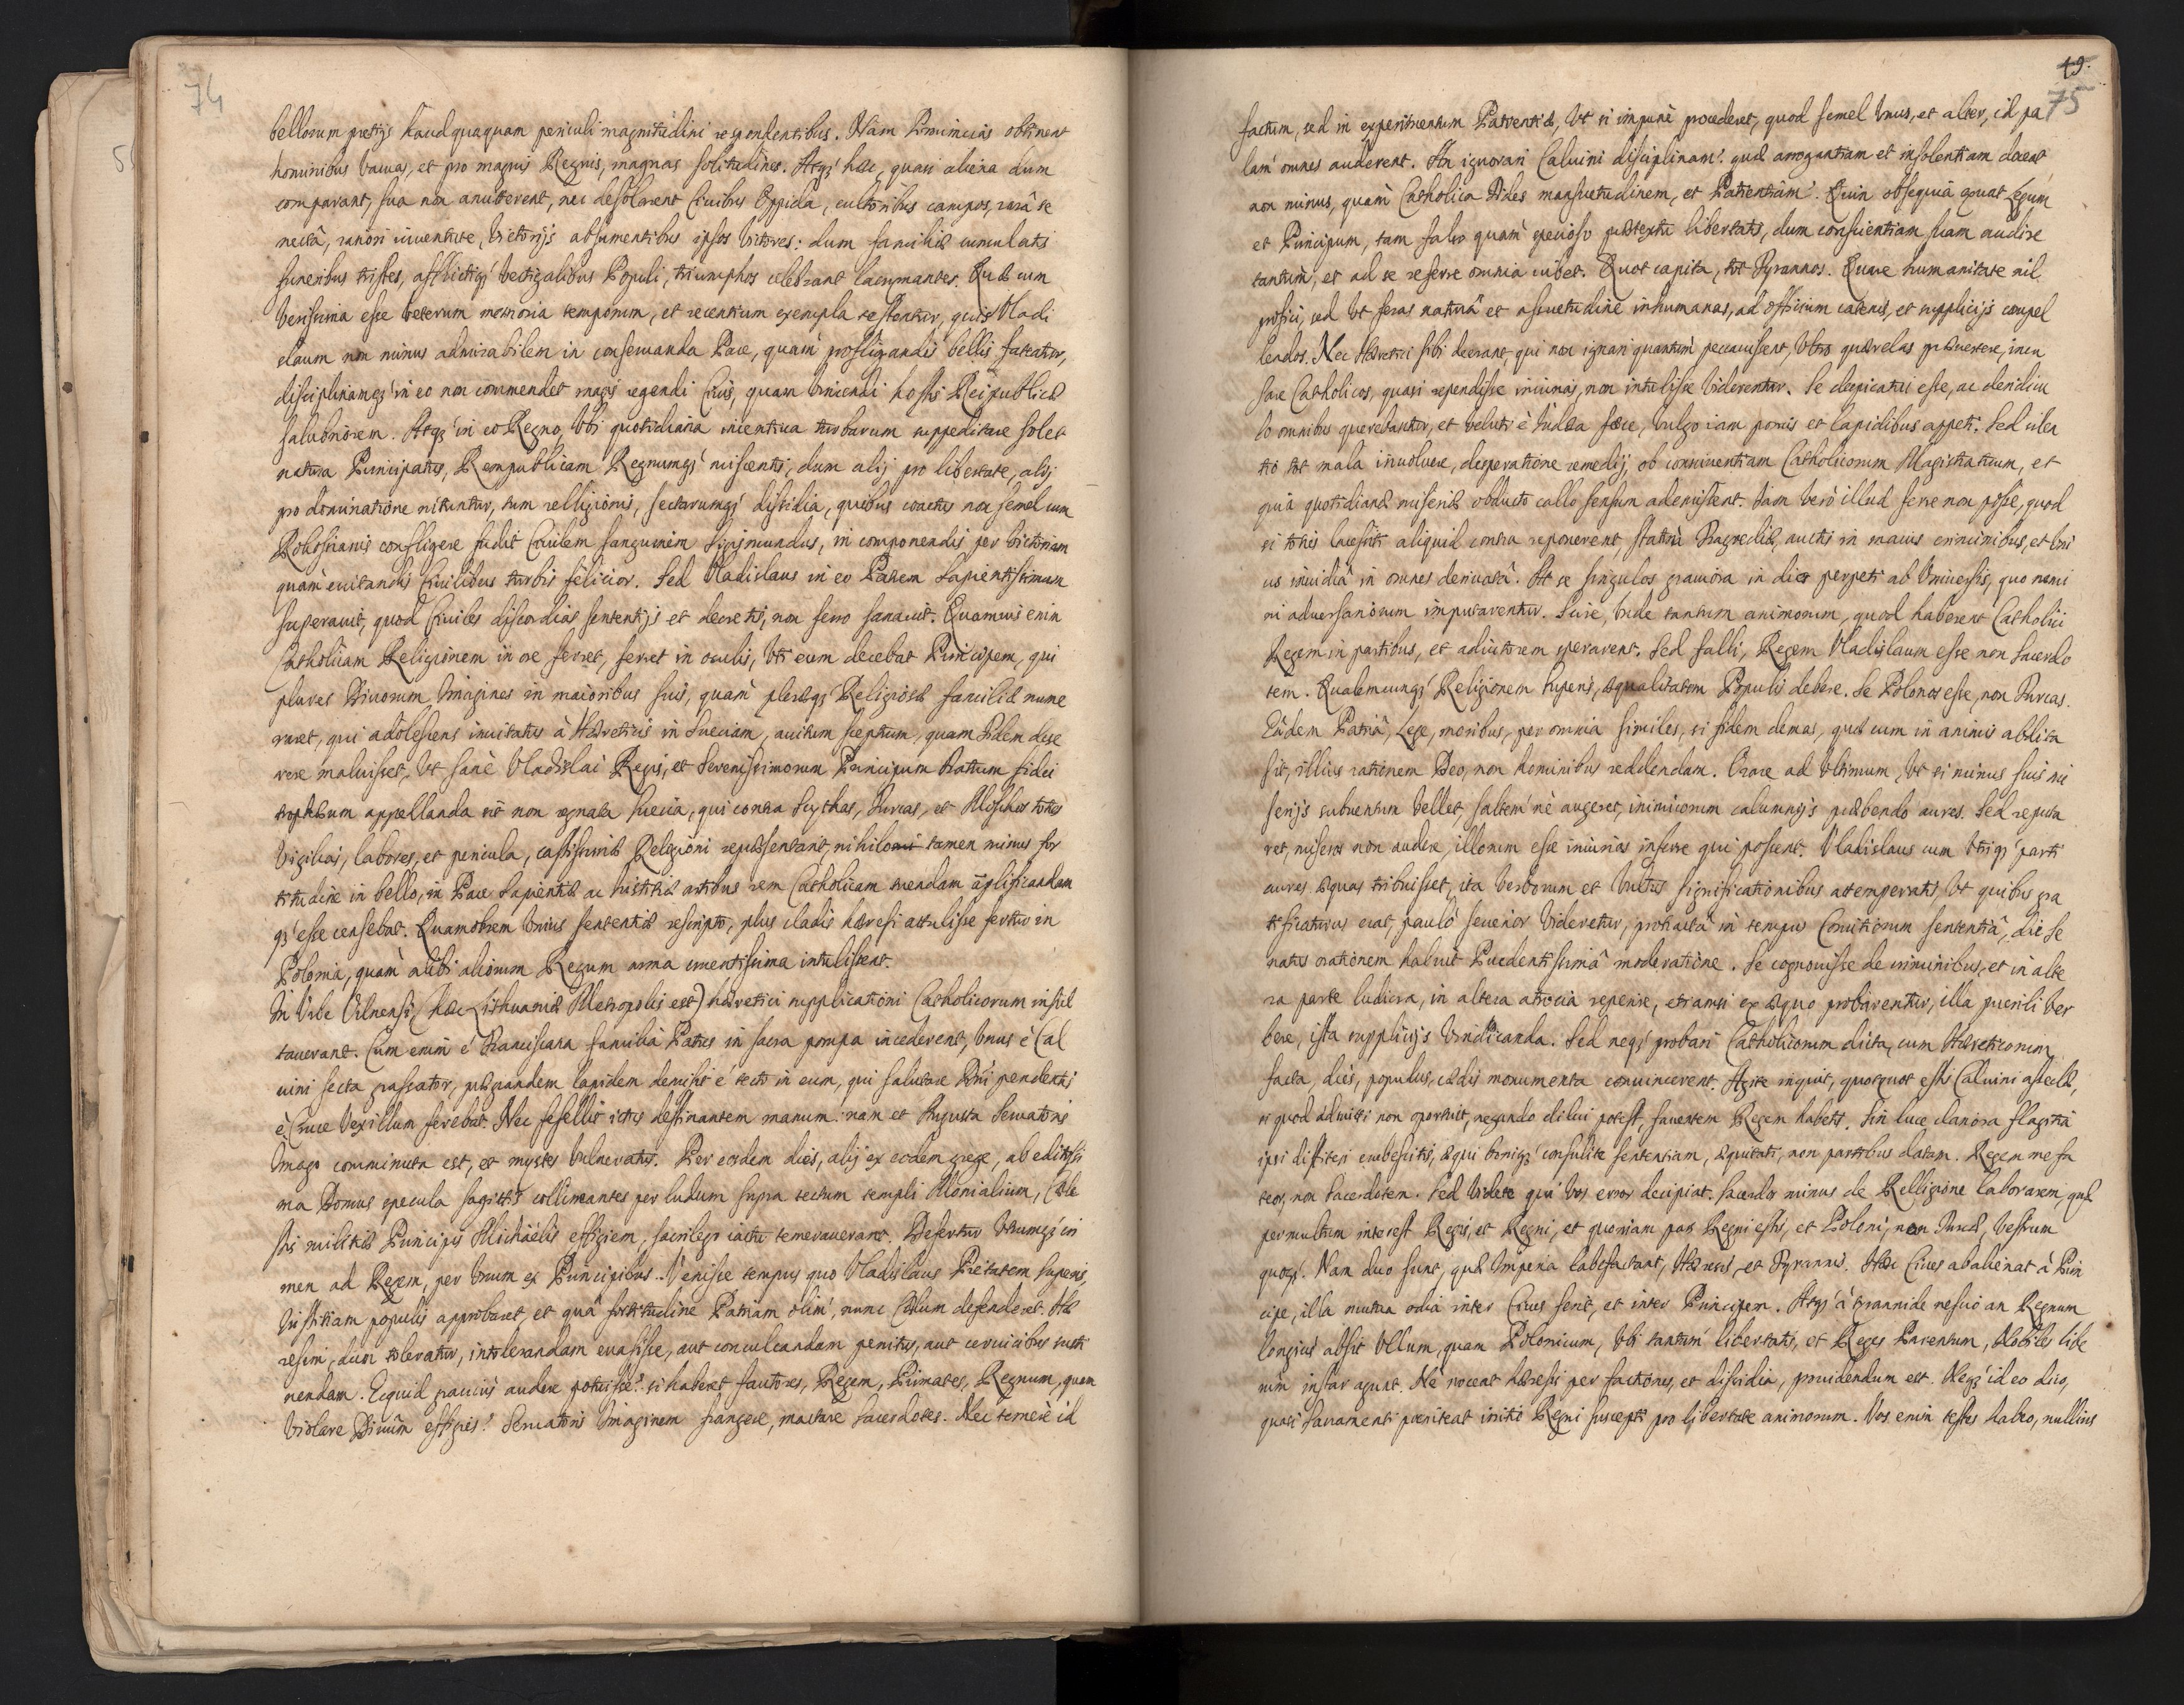 74
bellorum pretijs haudquaquam periculi magnitudini respondentibus. Nam Prouincias obtinent
hominibus vacuas, et pro magnis Regnis, magnas solitudines. Atq; hæc, quasi aliena dum
comparant, sua non amitterent, nec desolarent Ciuibus Oppida, cultoribus campos, rarâ se
nectâ, rariori iuuentute, Victorijs absumentibus ipsos Victores: dum familiæ cumulatis
funeribus tristes, afflictiq; vectigalibus Populi, triumphos celebrant lacrymantes. Quæ cum
Verissima esse veterum memoria temporum, et recentium exempla testentur, quis Vladi
slaum non minus admirabilem in conseruanda Pace, quam profligandis bellis fateatur,
disciplinamq; in eo non commendet magis regendi Ciuis, quam Vincendi hostis Reipublicæ
salubriorem. Atq; in eo Regno, Vbi quotidiana incentiua turbarum suppeditare solet
natura Principatus, Rempublicam Regnumq; miscentis, dum alij pro libertate, alij
pro dominatione nituntur, tum relligionis, sectarumq; dissidia, quibus coactus non semel cum
Rokossianis confligere fudit Ciuilem sanguinem Sigismundus, in componendis per Victoriam
quàm euitandis Ciuilibus turbis felicior. Sed Vladislaus in eo Patrem Sapientissimum
superauit, quod Ciuiles discordias sententijs et decretis, non ferro sanauit. Quamuis enim
Catholicam Religionem in ore ferret, ferret in oculis, Vti eum decebat Principem, qui
plures Diuorum Imagines in maioribus suis, quàm pleræq; Religiosæ familiæ nume
raret, qui adolescens inuitatus à Hæreticis in Sueciam, auitum sceptrum, quam Fidem dese
rere maluisset, Vt sanè Vladislai Regis, et Serenissimorum Principum Fratrum fidei
trophæum appellanda sit non regnata Suecia, qui contra Scythas, Turcas, et Moschos totus
Vigilias, labores, et pericula, castissimæ Religioni repræsentant, nihilo tamen minus for
titudine in bello, in Pace Sapientiæ ac Iustitiæ artibus rem Catholicam tuendam āplificandam
q; esse censebat. Quamobrem Vnius sententiæ rescripto, plus cladis hæresi attulisse fertur in
Polonia, quàm alibi aliorum Regum arma cruentissima intulissent.
In Vrbe Vilnensi (hæc Lithuaniæ Metropolis est) hæretici supplicationi Catholicorum insul
tauerant. Cum enim è Franciscana familia Patres in sacra pompa incederent, Vnus è Cal
uini secta grassator, prægrandem lapidem demisit è tecto in eum, qui salutare Dñi pendentis
è Cruce Vexillum ferebat. Nec fefellit ictus destinantem manum: nam et Augusta Seruatoris
Imago comminuta est, et mystes Vulneratus. Per eosdem dies, alij ex eodem grege, ab editissi
ma Domus specula sagittis collimantes per ludum supra tectum templi Monialium, Cæle
stis militiæ Principis Michaëlis effigiem, sacrilego iactu temerauerant. Defertur Vtrumq; cri
men ad Regem, per Vnum ex Principibus. Venisse tempus quo Vladislaus Pietatem superis,
Iustitiam populis approbaret, et quâ fortitudine Patriam olim, nunc Cælum defenderet. Hæ
resim, dum toleratur, intolerandam euasisse, aut conculcandam penitus, aut ceruicibus susti
nendam. Ecquid grauius audere potuisse? si haberet fautores, Regem, Primates, Regnum, quam
Violare Diuûm effigies? Seruatoris Imaginem frangere, mactare Sacerdotes. Nec temerè id
49.
75
factum, sed in experimentum Patientiæ, Vt si impunè procederet, quod semel Vnus, et alter, id pa
lam omnes auderent. An ignorari Caluini disciplinam? quæ arrogantiam et insolentiam doceat
non minus, quàm Catholica Fides mansuetudinem, et Patientiam? Quin obsequia exuat Legum
et Principum, tam falso quàm specioso prætextu libertatis, dum conscientiam suam audire
tantum, et ad se referre omnia iubet. Quot capita, tot Tyrannos. Quare humanitate nil
profici, sed Vt feras naturâ et assuetudine inhumanas, ad officium catenis, et supplicijs compel
lendos. Nec Hæretici sibi deerant, qui non ignari quantum peccauissent, Vltro quærelas præuertere, incu
sare Catholicos, quasi rependisse iniurias, non intulisse Viderentur. Se despicatui esse, ac deridicu
lo omnibus querebantur, et veluti è Iudæa fæce, vulgo iam pomis et lapidibus appeti. Sed silen
tio tot mala inuoluere, desperatione remedij, ob conniuentiam Catholicorum Magistratuum, et
quia quotidianæ miseriæ obducto callo sensum ademissent. Iam verò illud ferre non posse, quod
si totis lacessiti aliquid contra reponerent, statim Tragoediæ, auctis in maius criminibus, et Vni
us inuidiâ in omnes deriuatâ. At se singulos grauiora in dies perpeti ab Vniuersis, quo nemi
ni aduersariorum imputarentur. Scire, Vnde tantum animorum, quod haberent Catholici
Regem in partibus, et adiutorem sperarent. Sed falli, Regem Vladislaum esse non Sacerdo
tem. Qualemcunq; Religionem Superis, æqualitatem Populis debere. Se Polonos esse, non Turcas.
Eâdem Patriâ, Lege, moribus, per omnia similes, si fidem demas, quæ cum in animis abdita
sit, illius rationem Deo, non hominibus reddendam. Orare ad Vltimum, Vt si minus suis mi
serijs subuentum Vellet, saltem nè augeret, inimicorum calumnijs præbendo aures. Sed reputa
ret, miseros non audere, illorum esse iniurias inferre qui possent. Vladislaus cum Vtriq; parti
aures æquas tribuisset, ita Verborum et Vultus significationibus attemperatis Vt quibus gra
tificaturus erat, paulò seuerior Videretur, protractâ in tempus Comitiorum sententiâ, die Se
natus orationem habuit Prudentissimâ moderatione. Se cognouisse de criminibus, et in alte
ra parte ludicra, in altera atrocia reperire, etiamsi ex æquo probarentur, illa puerili ver
bere, ista supplicijs Vindicanda. Sed neq; probari Catholicorum dicta, cum Hæreticorum
facta, dies, populus, cædis monumenta conuincerent. Agite inquit, quotquot estis Caluini asseclæ,
si quod admitti non oportuit, negando dilui potest, fauentem Regem habetis. Sin luce clariora flagitia
ipsi diffiteri erubescitis, æqui boniq; consulite sententiam, æquitati, non partibus datam. Regem me fa
teor, non Sacerdotem. Sed Videte qui Vos error decipiat. Sacerdos minus de Relligione laborarem, quæ
permultum interest Regis, et Regni, et quoniam pars Regni estis, et Poloni, non Turcæ, Vestrum
quoq;. Nam duo sunt, quæ Imperia labefactant, Hæresis, et Tyrannis. Hæc Ciues abalienat à Prin
cipe, illa mutua odia inter Ciues serit, et inter Principem. Atq; à tyrannide nescio an Regnum
longius absit Vllum, quam Polonicum, Vbi tantum libertatis, et Reges Parentum, Nobiles libe
rûm instar agunt. Nè noceat Hæresis per factiones, et dissidia, prouidendum est. Neq; id eo dico,
quasi Sacramenti pœniteat initio Regni suscepti pro libertate animorum. Vos enim testes habeo, nullius